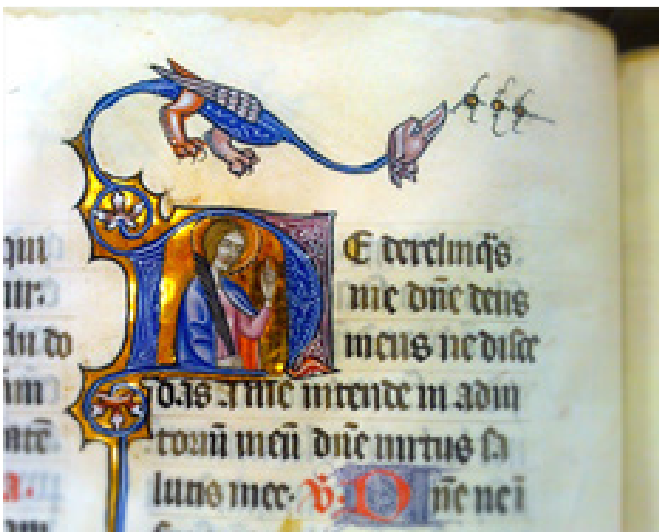 qui
do
NE derelinq̄s
me dn̄e deus
meus ne disce
das a me intende in adiu
toriū meū dn̄e uirtus sa
lutis mee. V. Dn̄e ne i